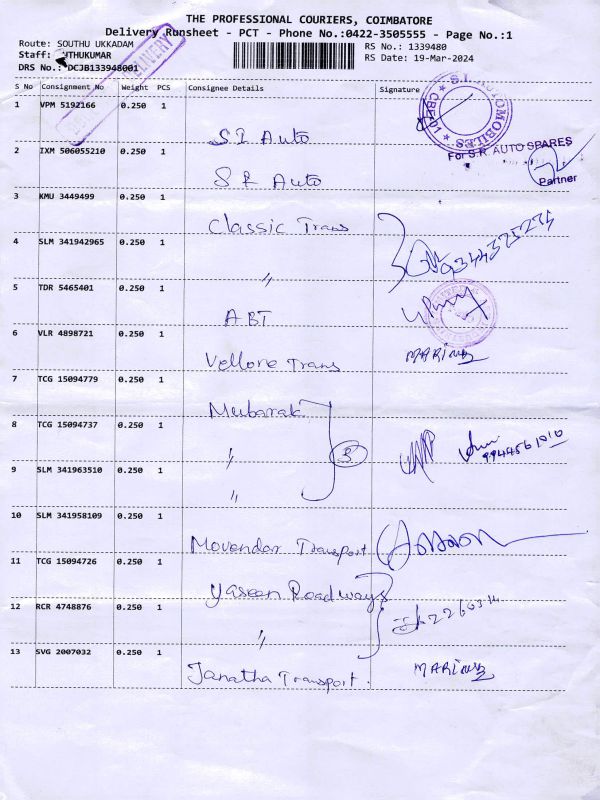 THE PROFESSIONAL COURIERS, COIMBATORE
Delivery Runsheet - PCT - Phone No.:0422-3505555 - Page No.:1
Route: SOUTHU UKKADAM
RS No.: 1339480
Staff: UTHUKUMAR
RS Date: 19-Mar-2024
DRS No.: DCJB133948001
DELIVERY
S No Consignment No Weight PCS Consignee Details Signature
1 VPM 5192166 0.250 1
S.I. AUTOMOBILES
CBE-01
S.I Auto
2 IXM 506055210 0.250 1
For S.R. AUTO SPARES
Partner
S R Auto
3 KMU 3449499 0.250 1
Classic Trans
4 SLM 341942965 0.250 1
"
5 TDR 5465401 0.250 1
ABT
6 VLR 4898721 0.250 1
Vellore Trans
7 TCG 15094779 0.250 1
Mubarak
8 TCG 15094737 0.250 1
" 3
9944561010
9 SLM 341963510 0.250 1
"
10 SLM 341958109 0.250 1
Movendar Transport
11 TCG 15094726 0.250 1
Yaseen Roadways
12 RCR 4748876 0.250 1
"
13 SVG 2007032 0.250 1
Janatha Transport.